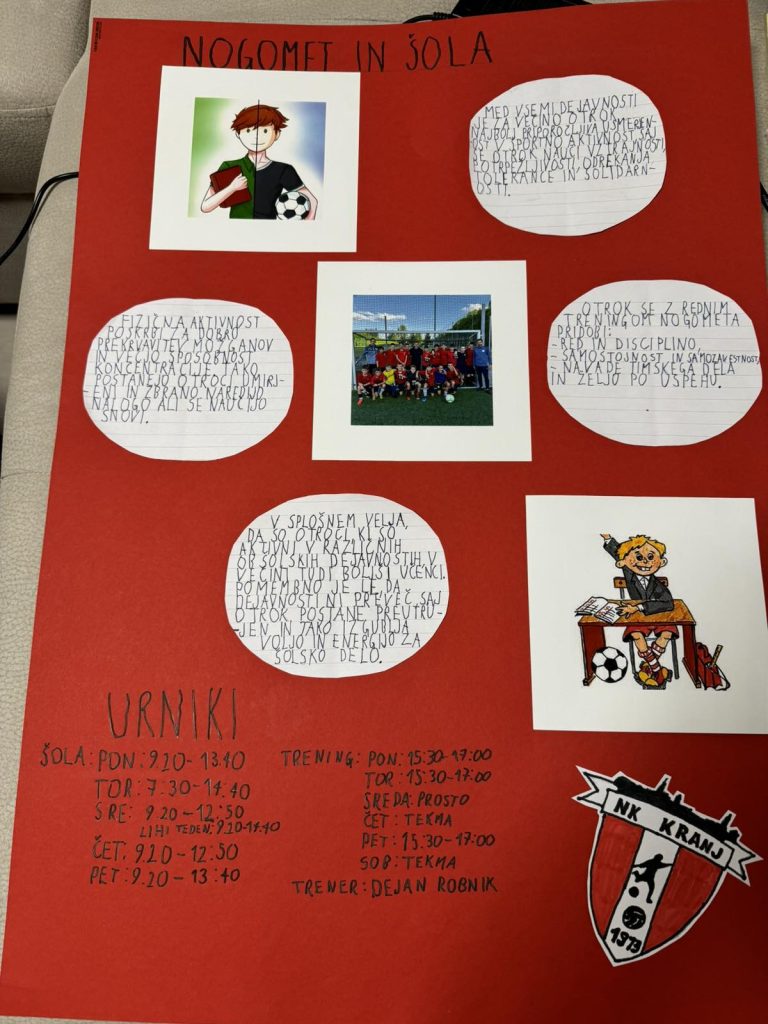 NOGOMET IN ŠOLA
MED VSEMI DEJAVNOSTI
JE ZA VEČINO OTROK
NAJBOLJ PRIPOROČLJIVA USMEREN-
OST V ŠPORTNO AKTIVNOST SAJ
SE OTROK NAUČI VZTRAJNOSTI,
POTRPEŽLJIVOSTI, ODREKANJA
TOLERANCE IN SOLIDARN-
OSTI.
FIZIČNA AKTIVNOST
POSKRBI ZA DOBRO
PREKRVAVITEV MOŽGANOV
IN TEKMO SPOSOBNOST
KONCENTRACIJE. TAKO
POSTANEJO OTROCI UMIRJ-
ENI IN ZBRANO NAREDIJO
NALOGO ALI SE NAUČIJO
SNOVI.
OTROK SE Z REDNIM
TRENINGOM NOGOMETA
PRIDOBI:
- RED IN DISCIPLINO,
- SAMOSTOJNOST IN SAMOZAVESTNOST,
- NAVADE TIMSKEGA DELA
IN ŽELJO PO USPEHU.
V SPLOŠNEM VELJA,
DA SO OTROCI, KI SO
AKTIVNI V RAZLIČNIH
OBŠOLSKIH DEJAVNOSTIH, V
VEČINI TUDI BOLJŠI UČENCI.
POMEMBNO JE LE, DA
DEJAVNOSTI NI PREVEČ, SAJ
OTROK POSTANE PREUTRU-
JEN IN TAKO IZGUBLJA
VOLJO IN ENERGIJO ZA
ŠOLSKO DELO.
URNIKI
ŠOLA: PON: 9.20 - 13.40
TOR: 7.30 - 14.40
SRE: 9.20 - 12.50
LIHI TEDEN: 9.20-14.40
ČET: 9.20 - 12.50
PET: 9.20 - 13.40
TRENING: PON: 15:30-17:00
TOR: 15:30-17:00
SREDA: PROSTO
ČET: TEKMA
PET: 15:30-17:00
SOB: TEKMA
TRENER: DEJAN ROBNIK
NK KRANJ
1973